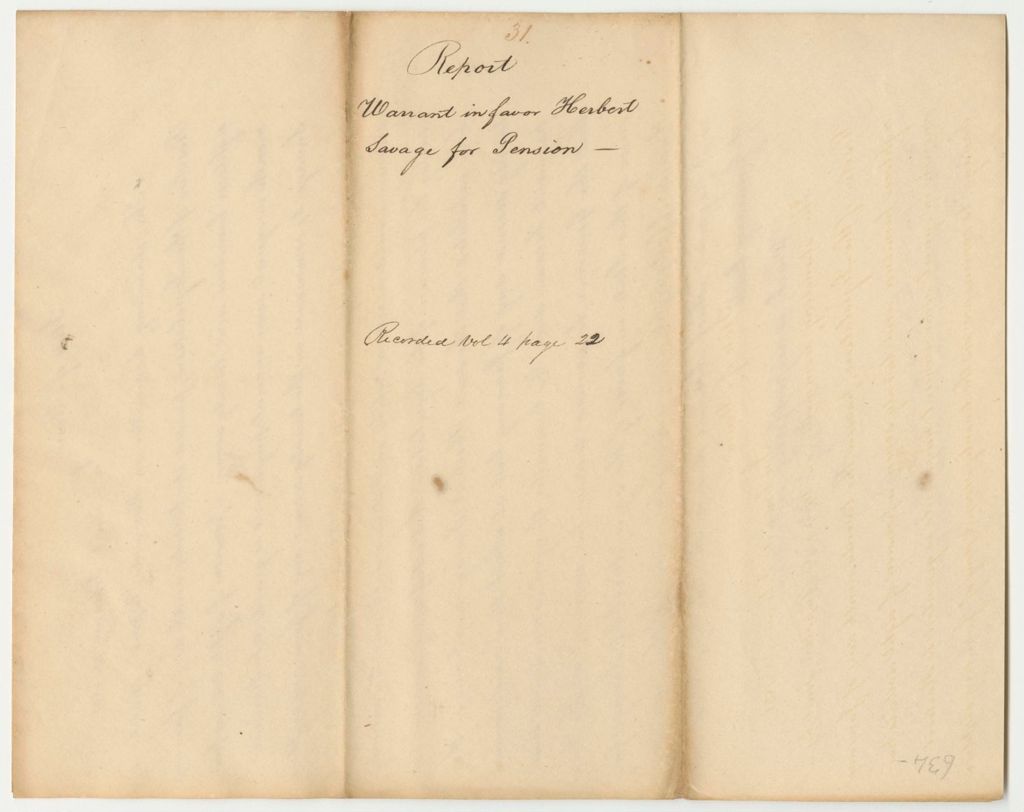 31.
Report
Warrant in favor Herbert
Savage for Pension —
Recorded Vol 4 page 22
634-